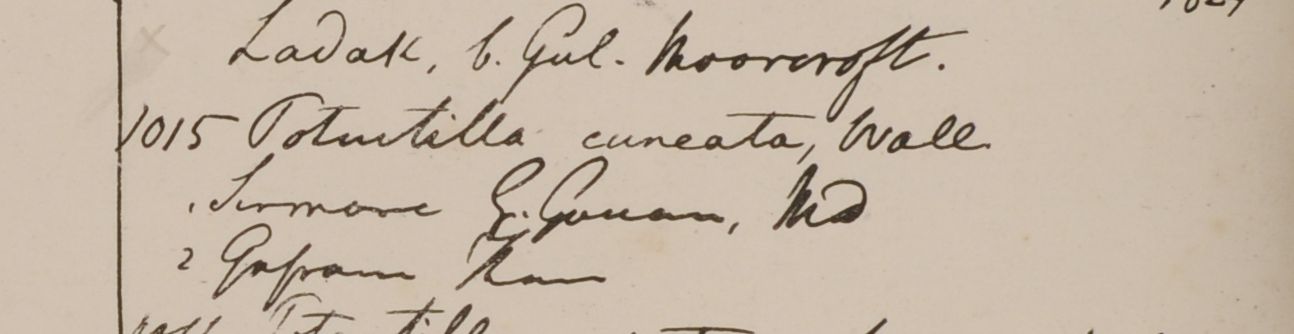 Ladak, b. Gul. Moorcroft.
1015 Potentilla cuneata, Wall.
Sirmore G. Govan, MD
2 Gossain Than
Potentilla